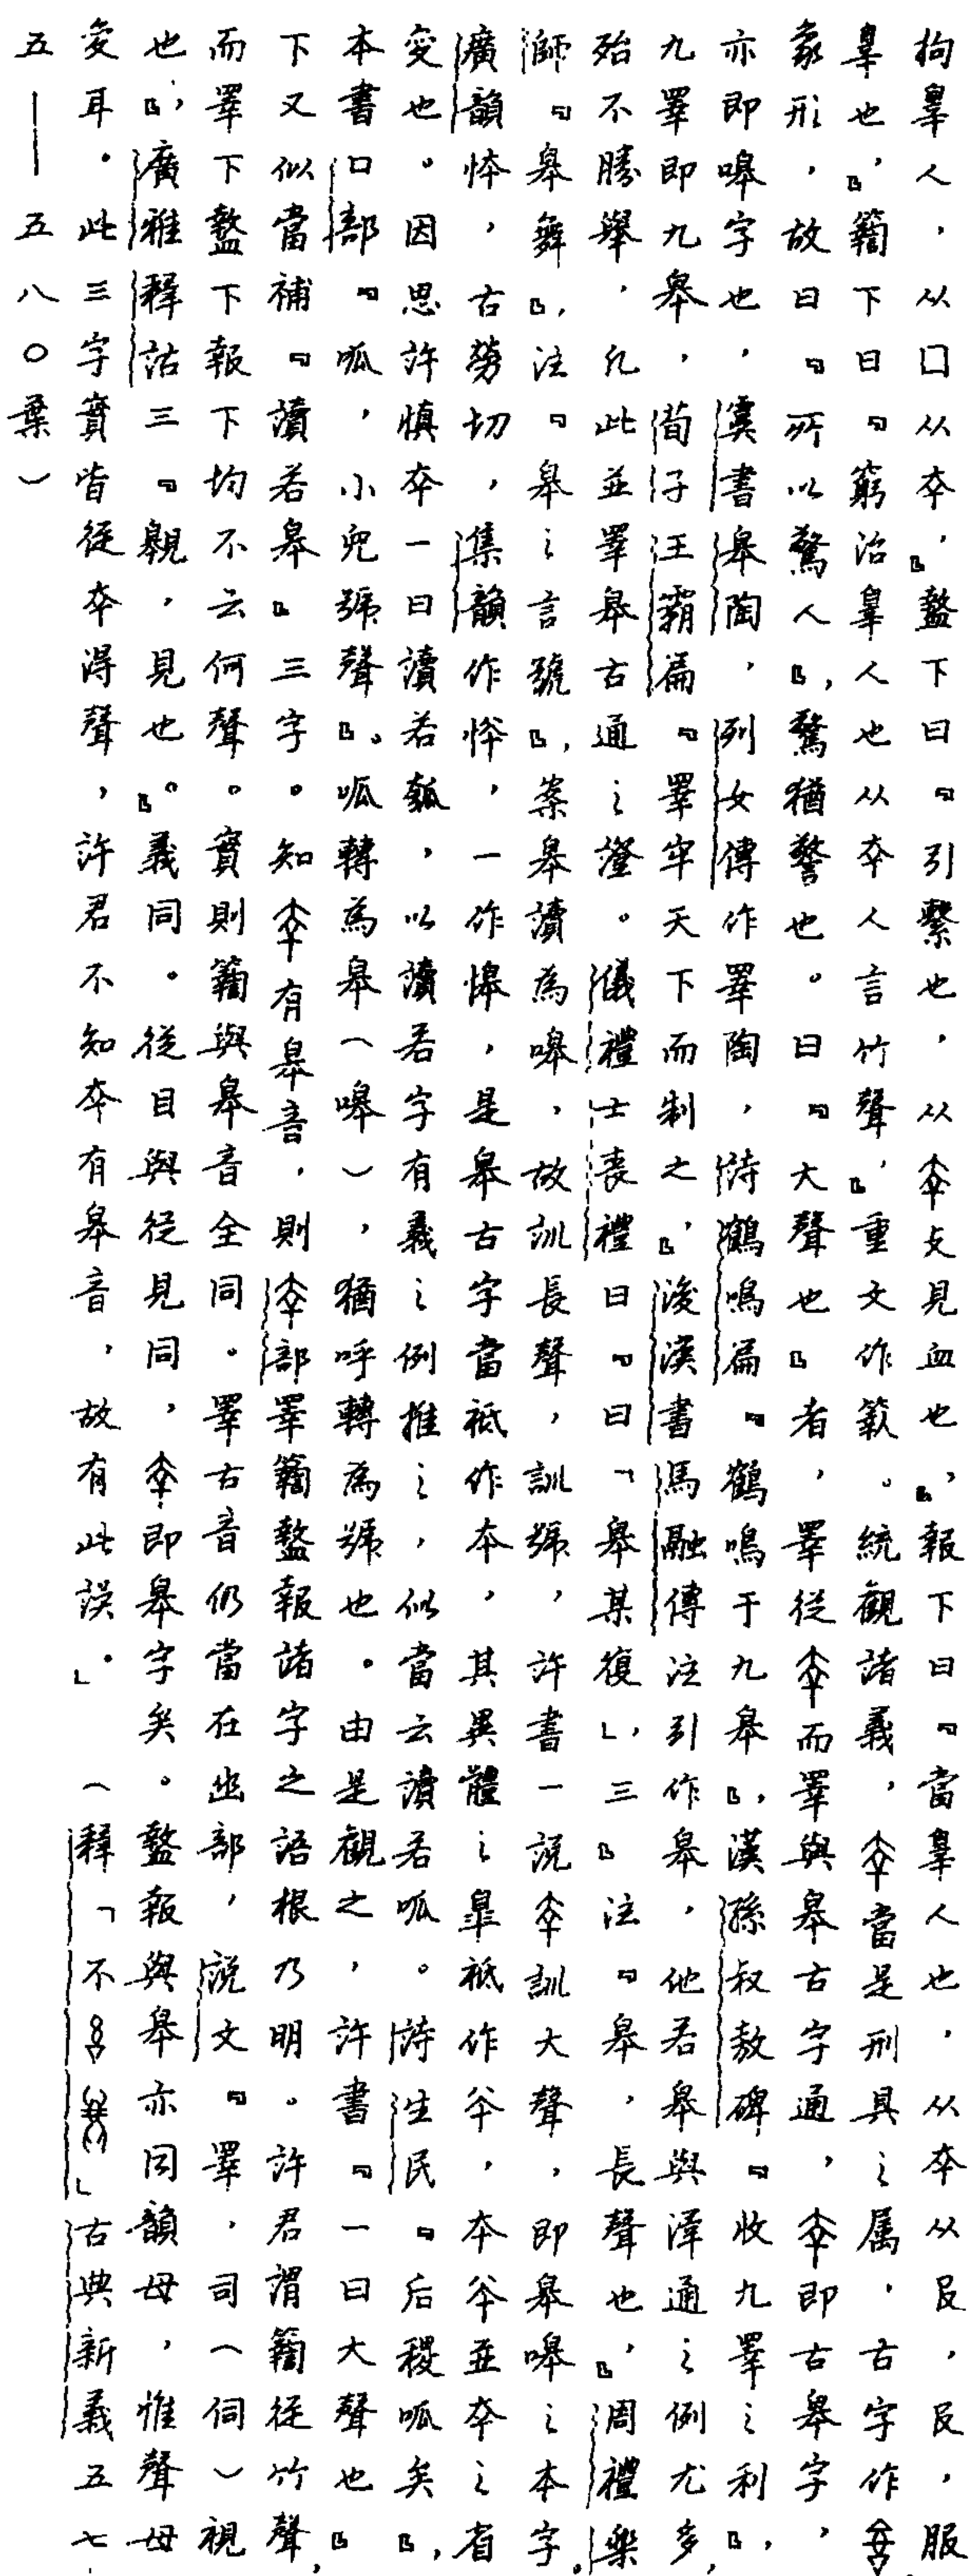 拘辠人，从囗从㚔，』盩下曰『引擊也，从㚔攴見血也，』報下曰『當辠人也，从㚔从𠬝，𠬝，服
辠也，』籟下曰『窮治辠人也从㚔人言竹聲，』重文作。統觀諸義，㚔當是刑具之属，古字作，
象形，故曰『所以驚人』，驚猶警也。曰『大聲也』者，睪從㚔而睪與皋古字通，㚔即古皋字，
亦即嘷字也，虞書皋陶，列女傳作睪陶，詩鶴鳴篇『鶴鳴于九皋』，漢孫叔敖碑『收九睪之利』，
九睪即九皋，荀子王霸篇『睪牢天下而制之，』後漢書馬融傳注引作皋，他若皋與澤通之例尤多，
殆不勝舉，凡此並睪皋古通之證。儀禮士喪禮曰『曰「皋某復」，三』注『皋，長聲也，』周禮樂
師『皋舞』，注『皋之言號』，案皋讀為嘷，故訓長聲，訓號，許書一說㚔訓大聲，即皋嘷之本字。
廣韻㤓，古勞切，集韻作㤒，一作㟸，是皋古字當祗作夲，其異體之皐祗作㚏，夲㚏並㚔之省
变也。因思許慎㚔一曰讀若瓠，以讀若字有義之例推之，似當云讀若呱。詩生民『后稷呱矣』，
本書口部『呱，小兒號聲』。呱轉為皋（嘷），猶呼轉為號也。由是觀之，許書『一曰大聲也』
下又似當補『讀若皋』三字。知㚔有皋音，則㚔部睪籟盩報諸字之語根乃明。許君謂籟從竹聲，
而睪下盩下報下均不云何聲。實則籟與皋音全同。睪古音仍當在幽部，說文『睪，司（伺）視
也』，廣雅釋詁三『覞，見也』。義同。從目與從見同，㚔即皋字矣。盩報與皋亦同韻母，惟聲母
变耳。此三字實皆從㚔得聲，許君不知㚔有皋音，故有此誤。」（釋「不」古典新義五七
五——五八〇葉）